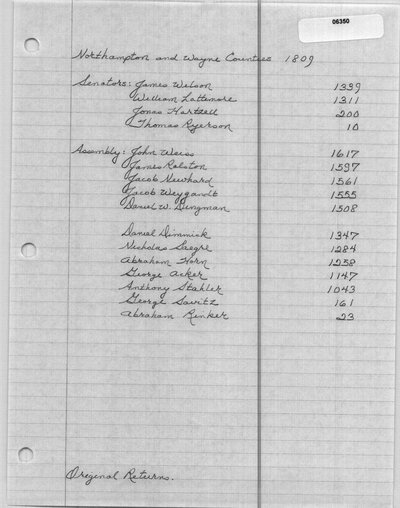 06350
Northampton and Wayne Counties 1809
Senators: James Wilson 1339
William Lattimore 1311
Jonas Hartzell 200
Thomas Ryerson 10
Assembly: John Weiss 1617
James Ralston 1597
Jacob Newhard 1561
Jacob Weygandt 1555
Daniel W. Dingman 1508
Daniel Dimmick 1347
Nicholas Saegre 1284
Abraham Horn 1258
George Acker 1147
Anthony Stahler 1043
George Savitz 161
Abraham Rinker 23
Original Returns.